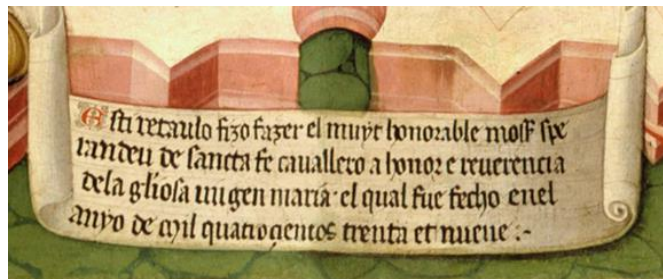 Esti retaulo fizo fazer el muyt honorable moss spe
randeu de sancta fe cauallero a honor e reuerencia
dela gliosa uirgen maria · el qual fue fecho enel
anyo de Mil quatrogentos trenta et nueue :-